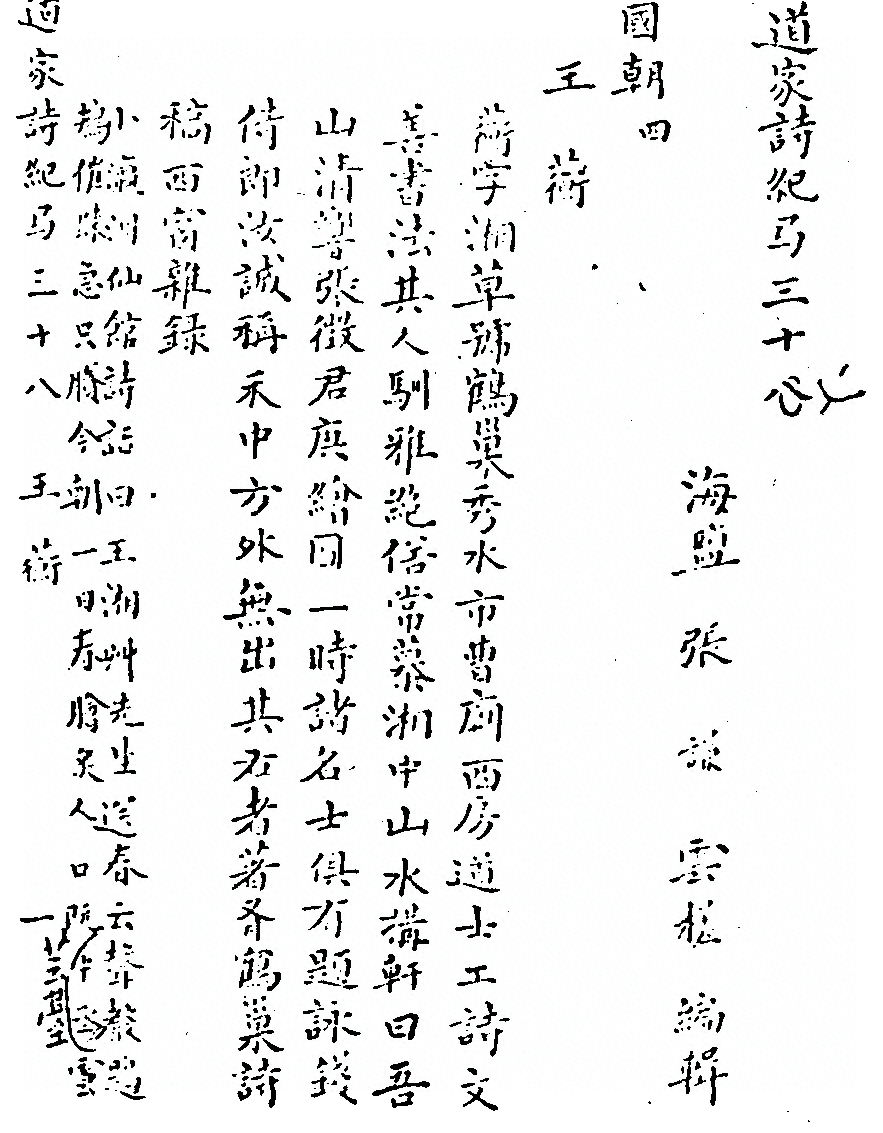 道家詩紀弓三十八
海鹽張謙雲槎編輯
國朝四
王蘅
蘅字湘草號鶴巢秀水市曹廟西房道士工詩文
善書法其人馴雅絕俗常慕湖中山水搆軒曰吾
山清響張徵君庚繪圖一時諸名士俱有題詠錢
侍郎汝誠稱禾中方外無出其右者著有鶴巢詩
稿西窗雜錄
小瀛洲仙館詩話曰王湘艸先生送春云聲嚴
為催歸急只勝今朝一日春膾炙人口阮雲臺
道家詩紀弓三十八 王蘅 一